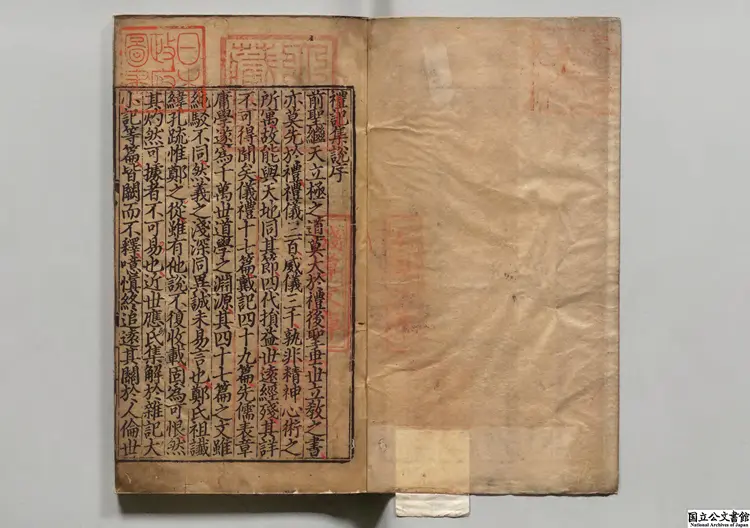 禮記集說序
前聖繼天立極之道莫大於禮後聖垂世立敎之書
亦莫先於禮禮儀三百威儀三千孰非精神心術之
所寓故能與天地同其節四代損益世遠經殘其詳
不可得聞矣儀禮十七篇戴記四十九篇先儒表章
庸學遂爲千萬世道學之淵源其四十七篇之文雖
純駁不同然義之淺深同異誠未易言也鄭氏祖讖
緯孔疏惟鄭之從雖有他說不復收載固爲可恨然
其灼然可據者不可易也近世應氏集解於雜記大
小記等篇皆闕而不釋噫愼終追遠其關於人倫世
日本政府圖書
国立公文書館
National Archives of Japan